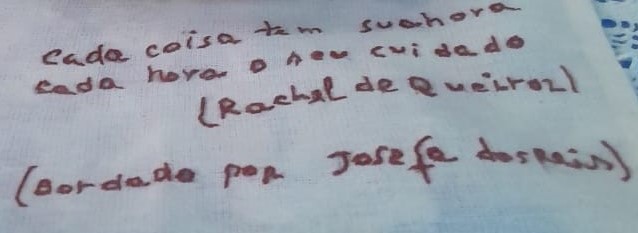 cada coisa tem suahora
cada hora o seu cuidado
(Rachel de Queiroz)
(Bordado por Josefa dosReis)